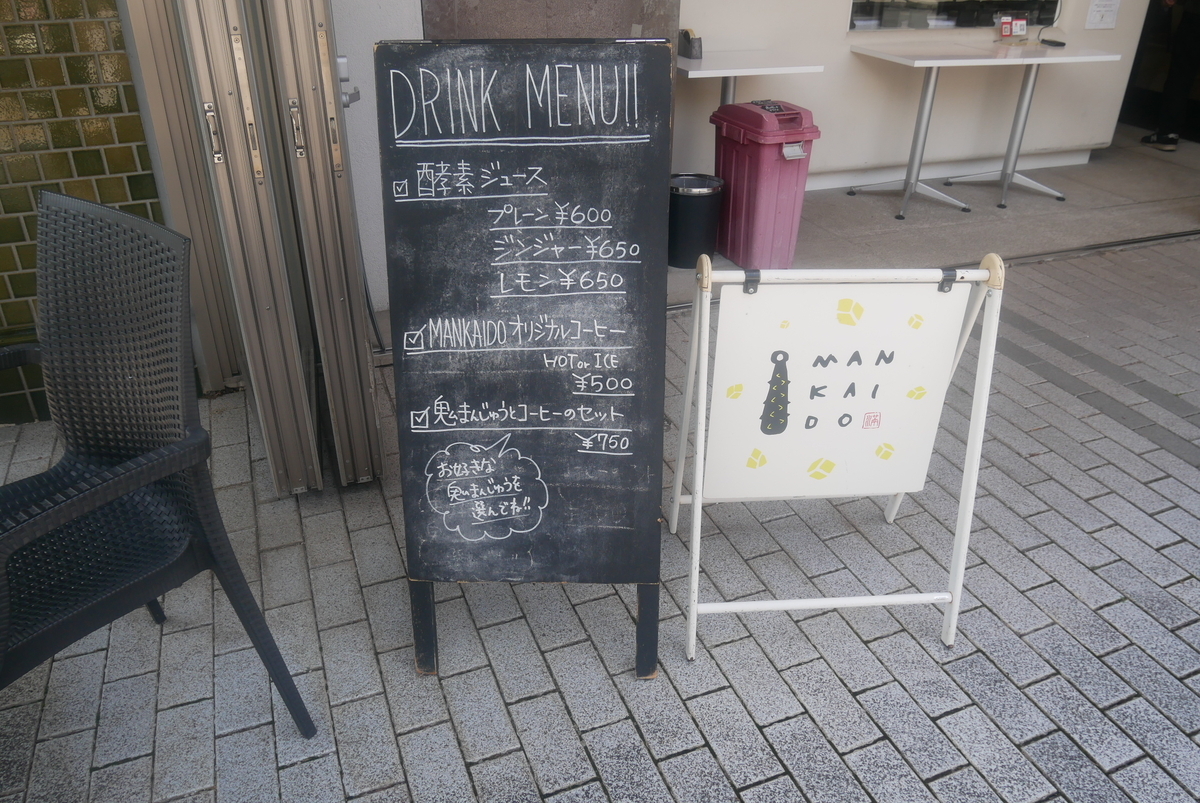 DRINK MENU!!
酵素ジュース
プレーン ¥600
ジンジャー ¥650
レモン ¥650
MANKAIDOオリジナルコーヒー
HOT or ICE
¥500
鬼まんじゅうとコーヒーのセット
¥750
お好きな
鬼まんじゅうを
選んでね!!
MAN
KAI
DO